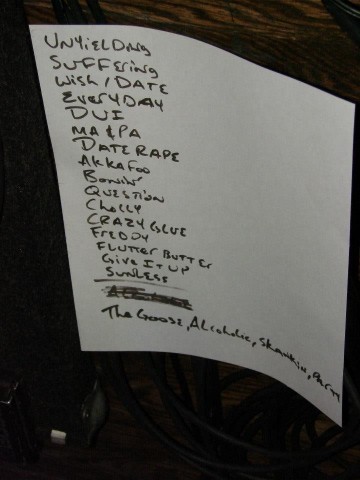 UNYIELDING
SUFFERING
WISH / DATE
EVERYDAY
DUI
MA & PA
DATE RAPE
AKKAFOO
BONIN'
QUESTION
CHOLLY
CRAZY GLUE
FREDDY
FLUTTER BUTTER
GIVE IT UP
SUNLESS
The Goose, Alcoholic, Skankin, Party